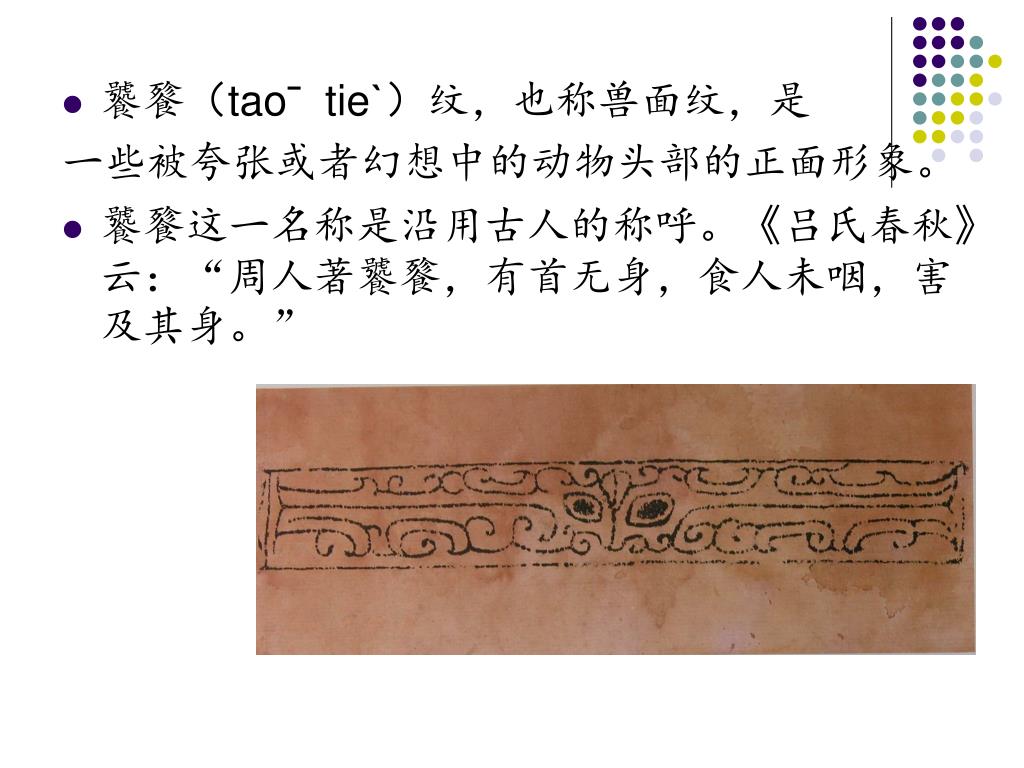 饕餮（tao¯ tie`）纹，也称兽面纹，是
一些被夸张或者幻想中的动物头部的正面形象。
饕餮这一名称是沿用古人的称呼。《吕氏春秋》
云：“周人著饕餮，有首无身，食人未咽，害
及其身。”